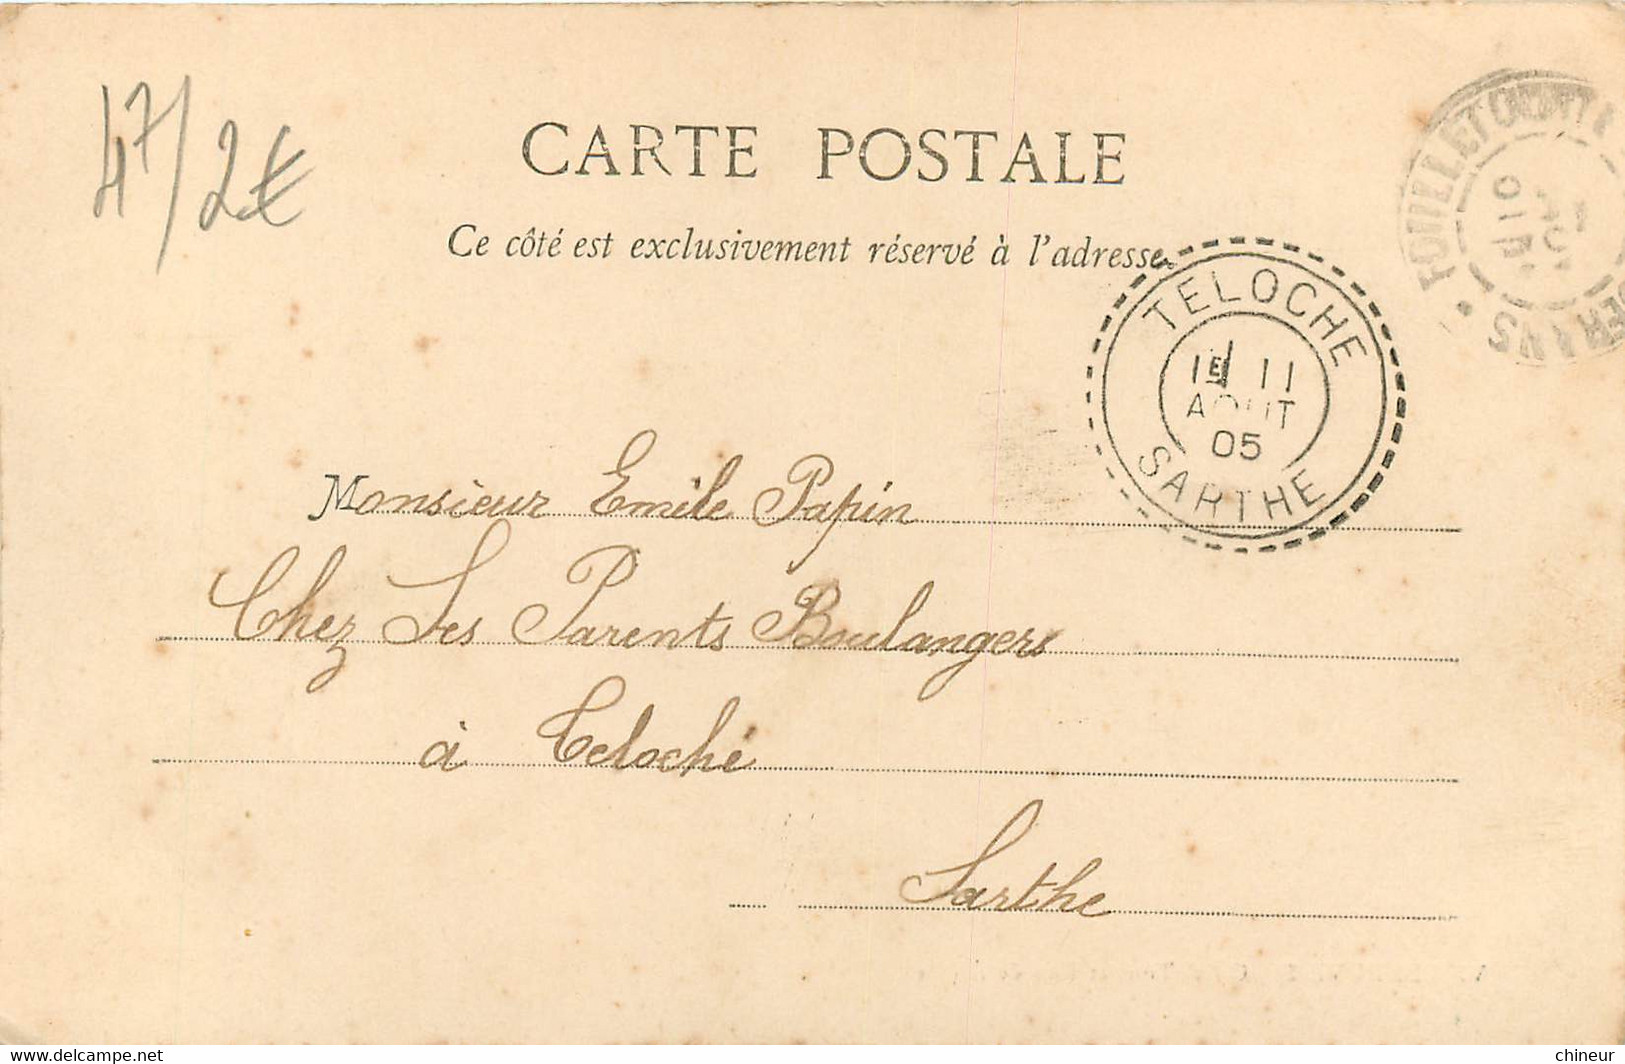 47/2€
CARTE POSTALE
Ce côté est exclusivement réservé à l'adresse.
TELOCHE
1E 11
AOUT
05
SARTHE
Monsieur Emile Papin
Chez Ses Parents Boulangers
à Teloché
Sarthe
www.delcampe.net
chineur